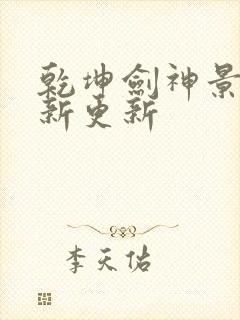 乾坤劍神景
新更新
李天佑